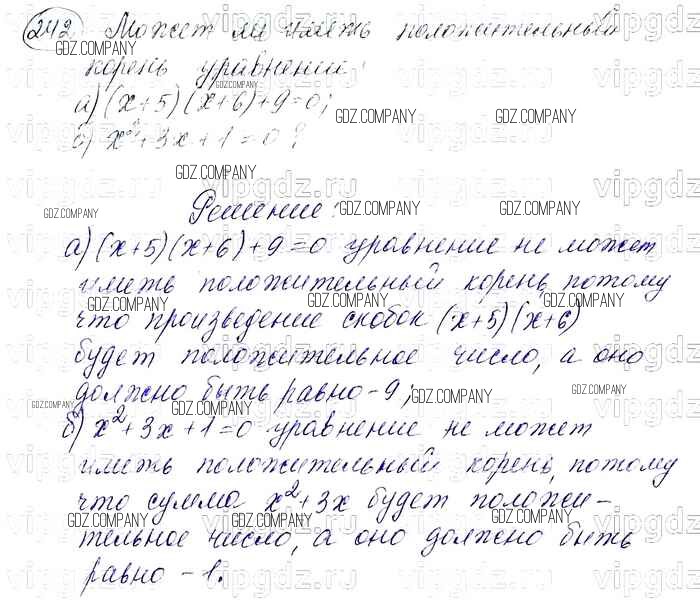 242 Может ли иметь положительный
корень уравнения:
а) (x+5)(x+6)+9=0;
б) x²+3x+1=0?
Решение:
а) (x+5)(x+6)+9=0 уравнение не может
иметь положительный корень, потому
что произведение скобок (x+5)(x+6)
будет положительное число, а оно
должно быть равно -9;
б) x²+3x+1=0 уравнение не может
иметь положительный корень, потому
что сумма x²+3x будет положи-
тельное число, а оно должно быть
равно -1.